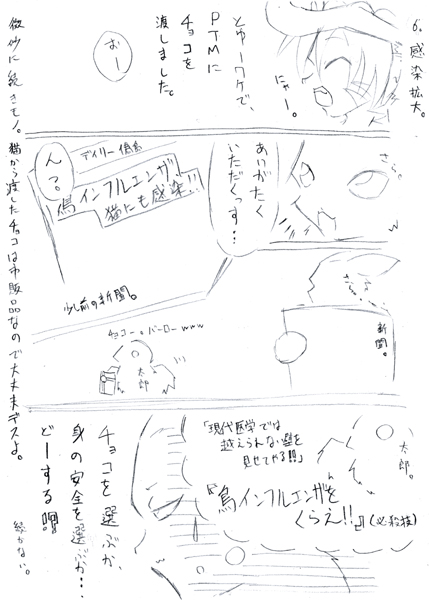 6. 感染拡大。
にゃー。
とゆーワケで、
PTMに
チョコを
渡しました。
おー
さっ。
ありがたく
いただくっす…
デイリー
鳥インフルエンザ、
猫にも感染!!
ん?
少し前の新聞。
新聞。
チョコー。バーローwww
太郎
太郎。
「現代医学では
越えられない壁を
見せてやる!!」
『鳥インフルエンザを
くらえ!!』(必殺技)
チョコを選ぶか、
身の安全を選ぶか…
どーする!?
続かない。
微妙に続きモノ。猫から渡したチョコは市販品なので大丈夫デスよ。